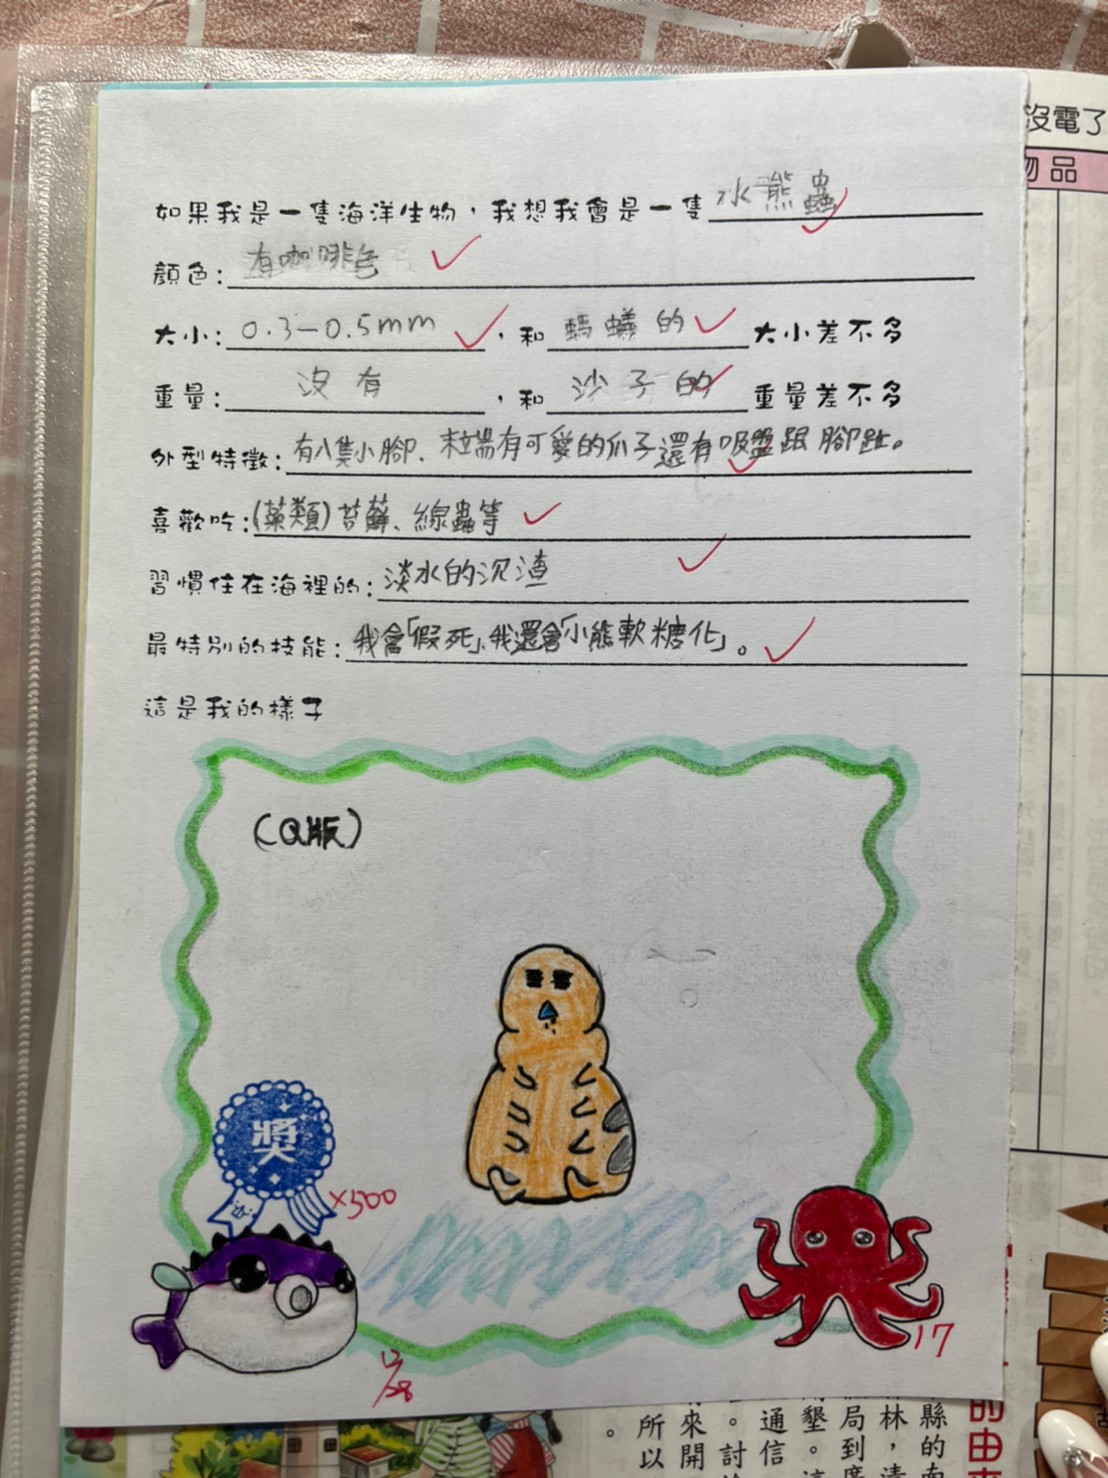 沒電了
物品
如果我是一隻海洋生物，我想我會是一隻水熊蟲
顏色：有咖啡色
大小：0.3－0.5mm，和螞蟻的大小差不多
重量：沒有，和沙子的重量差不多
外型特徵：有八隻小腳、末端有可愛的爪子還有吸盤跟腳趾。
喜歡吃：(藻類)苔蘚、線蟲等
習慣住在海裡的：淡水的沉渣
最特別的技能：我會「假死」、我還會「小熊軟糖化」。
這是我的樣子
(Q版)
獎
×500
17
12/28
的由
縣的
林，清
局到廣
墾。
通信
。討
來開
所以
。